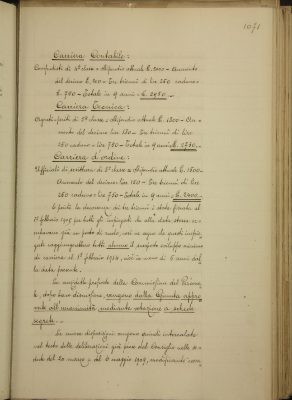 1071
Carriera Contabile:
Computisti di 4ª classe = Stipendio attuale L. 2000 - Aumento
del decimo L. 200 - Tre bienni di lire 250 caduno =
L. 750 - Totale in 9 anni = L. 2950 -
Carriera Tecnica:
di 5ª classe = Stipendio attuale L. 1800 - Au-
mento del decimo lire 180 - Tre bienni di lire
250 caduno = lire 750 - Totale in 9 anni L. 2730.-
Carriera d'ordine:
Ufficiali di scrittura di 5ª classe = Stipendio attuale L. 1500 -
Aumento del decimo lire 150 - Tre bienni di lire
250 caduno = lire 750 - Totale in 9 anni L. 2400.-
E poichè la decorrenza dei tre bienni è stata fissata al
1º febbraio 1905 per tutti gli impiegati che alla data stessa
in posto di ruolo, così ne segue che questi impie-
gati raggiungerebbero tutti almeno il predetto sviluppo minimo
di carriera al 1º febbraio 1914, cioè in meno di 6 anni dal-
la data presente.
Le anzidette proposte della Commissione del Persona-
le, dopo breve discussione, vengono dalla Giunta appro-
vate all'unanimità, mediante votazione a schede
segrete.
Le nuove disposizioni vengono quindi intercalate
nel testo delle deliberazioni già prese dal Consiglio nelle se-
dute del 20 marzo e del 6 maggio 1907, modificandone